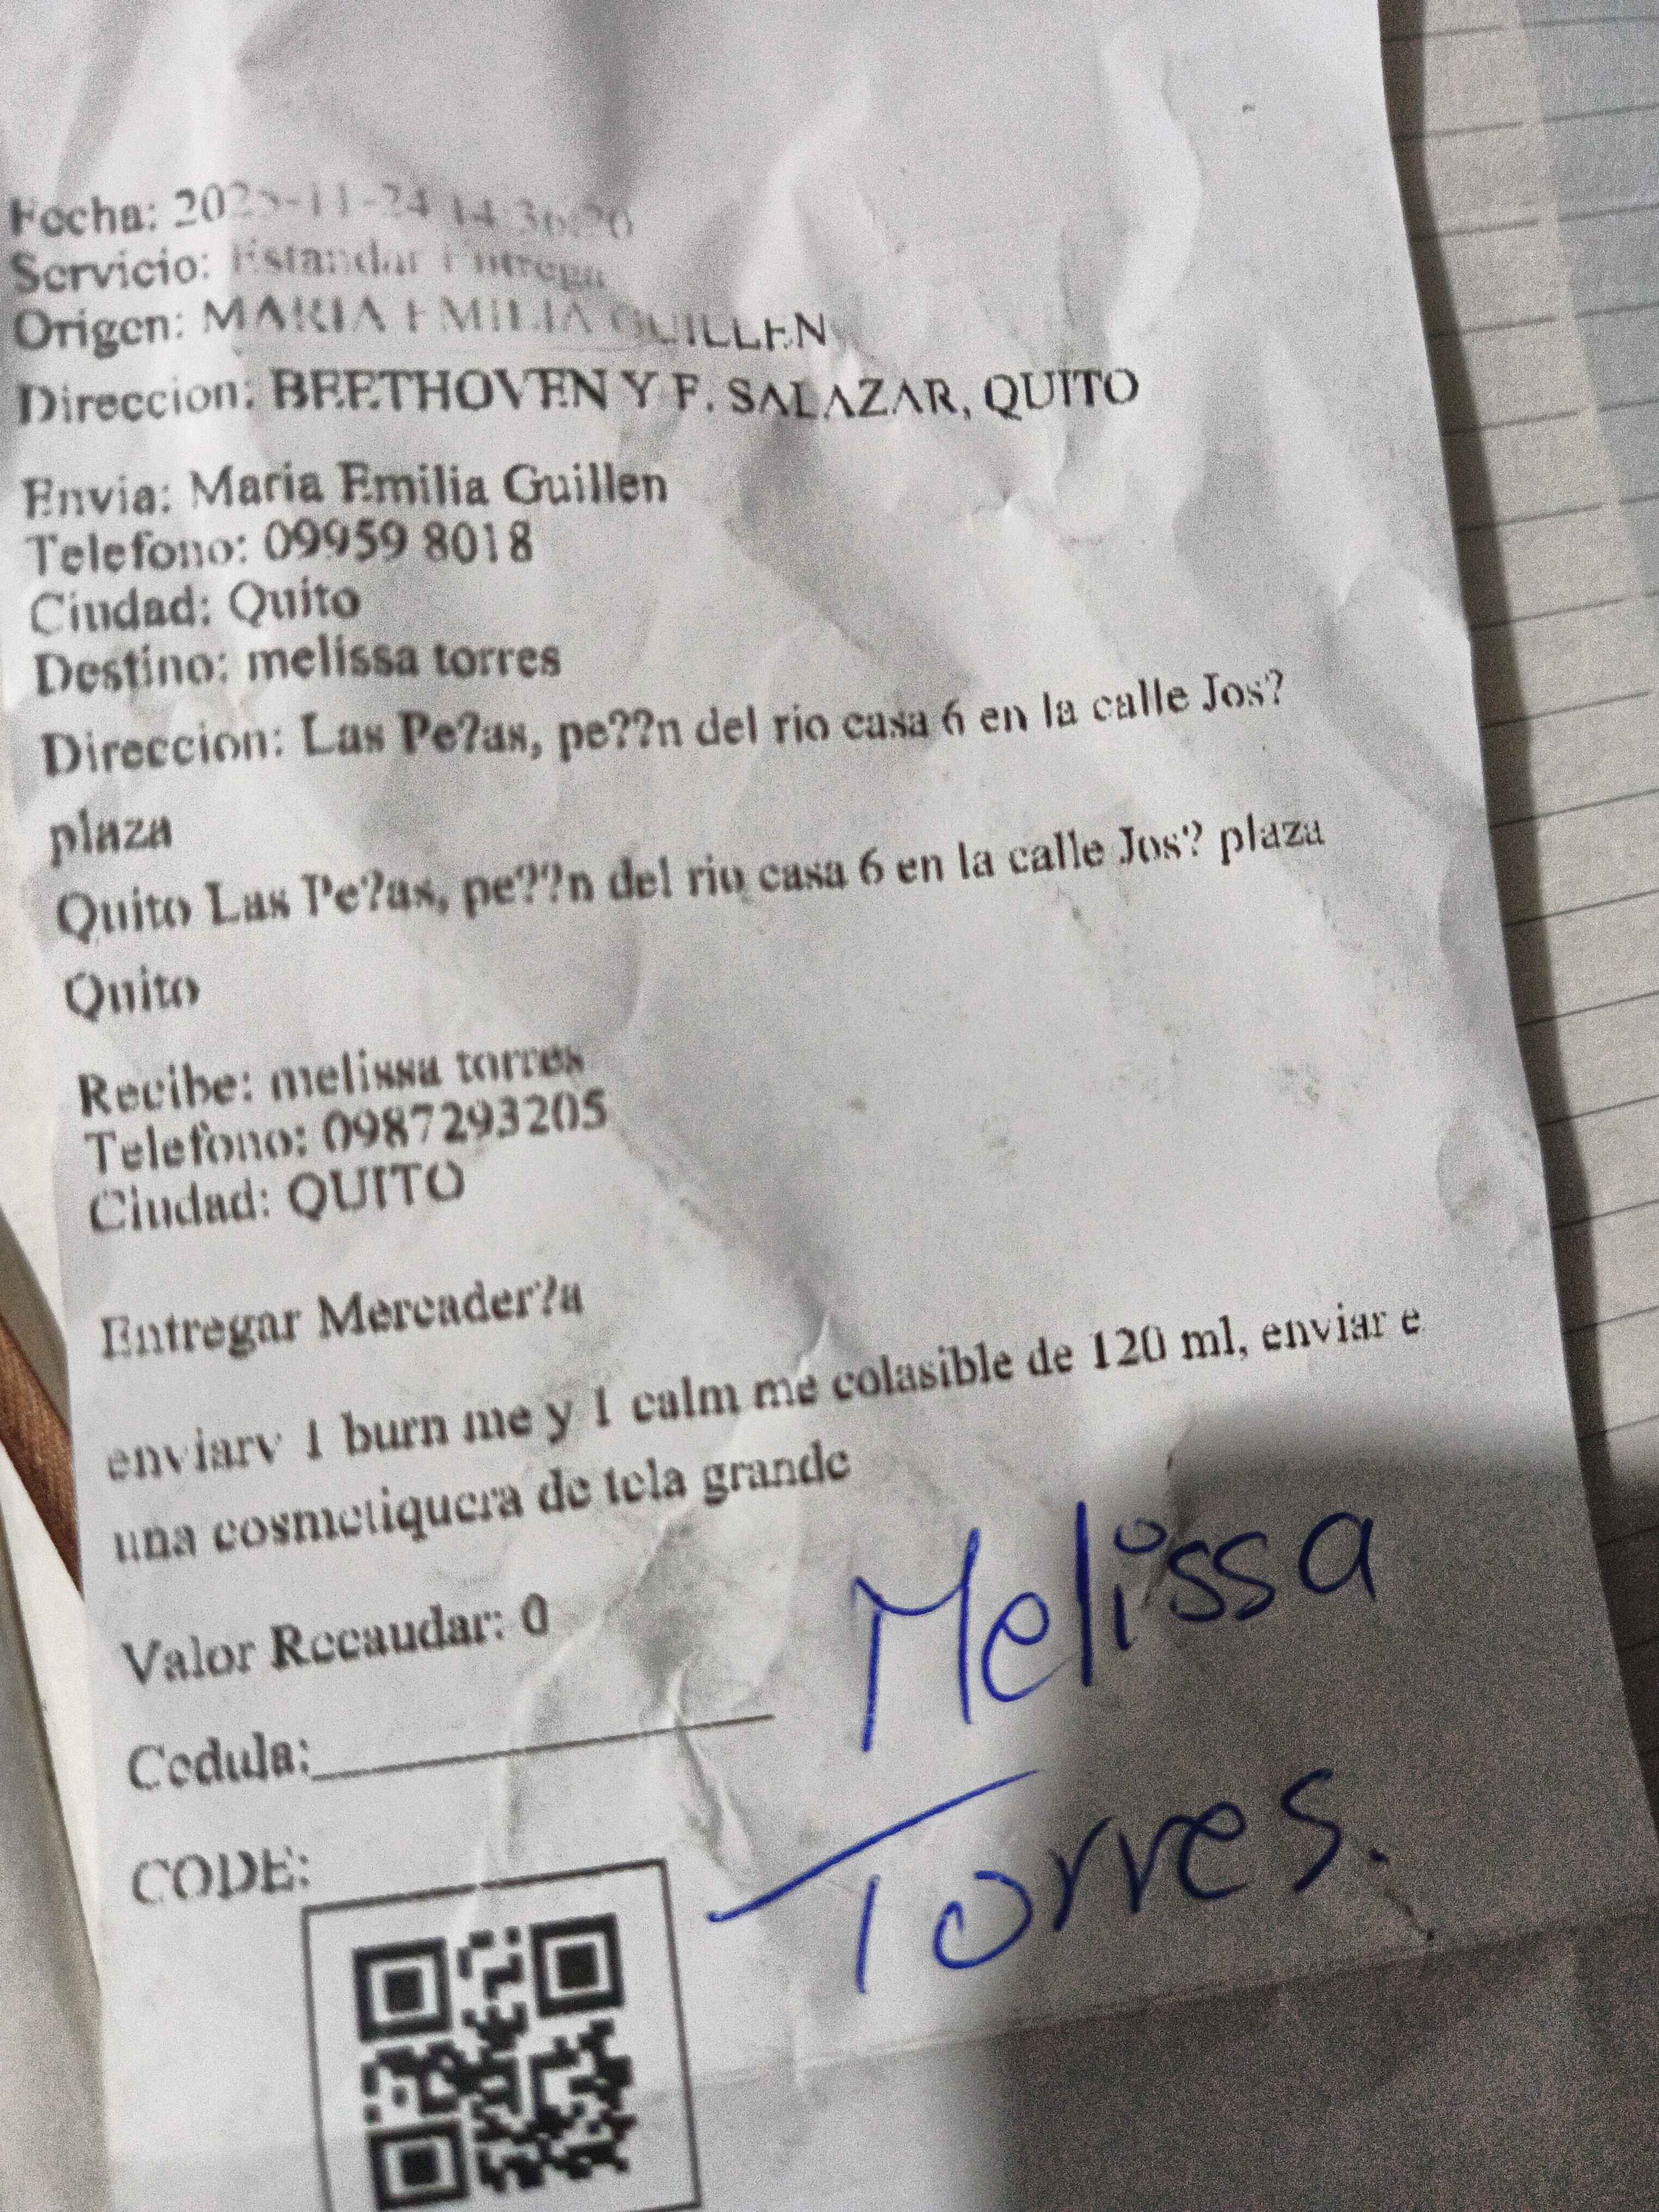 Fecha: 2025-11-24 14:36:20
Servicio: Estandar Entrega
Origen: MARIA EMILIA GUILLEN
Direccion: BEETHOVEN Y F. SALAZAR, QUITO
Envia: Maria Emilia Guillen
Telefono: 09959 8018
Ciudad: Quito
Destino: melissa torres
Direccion: Las Pe?as, pe??n del rio casa 6 en la calle Jos?
plaza
Quito Las Pe?as, pe??n del rio casa 6 en la calle Jos? plaza
Quito
Recibe: melissa torres
Telefono: 0987293205
Ciudad: QUITO
Entregar Mercader?a
enviarv 1 burn me y 1 calm me colasible de 120 ml, enviar e
una cosmetiquera de tela grande
Valor Recaudar: 0
Cedula:
CODE:
Melissa
Torres.